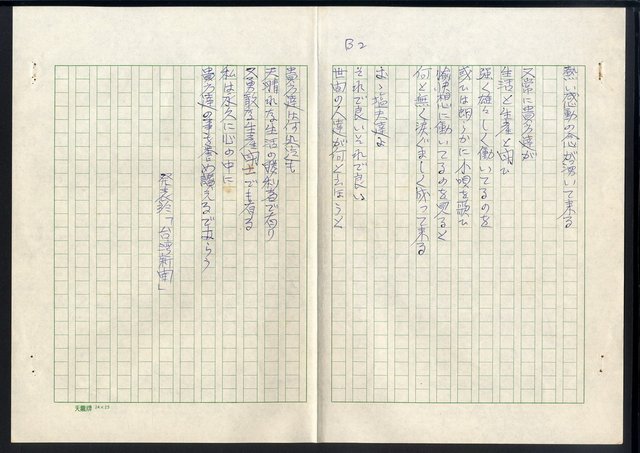 B2
熱い感動の心が湧いて来る
又常に貴方達が
生活と生産と闘ひ
強く雄々しく働いてるのを
或ひは朗らかに小唄を歌ひ
愉快想に働いてるのを見ると
何と無く涙ぐましく成って来る
おゝ塩夫達よ
それで良いそれで良い
世間の人達が何と云はうと
貴方達は何処迄も
天晴れな生活の勝利者で有り
又勇敢な生産闘士でも有る
私は永久に心の中に
貴方達の事を誉め讃えるであらう
発表於「台湾新聞」
天龍牌 24×25